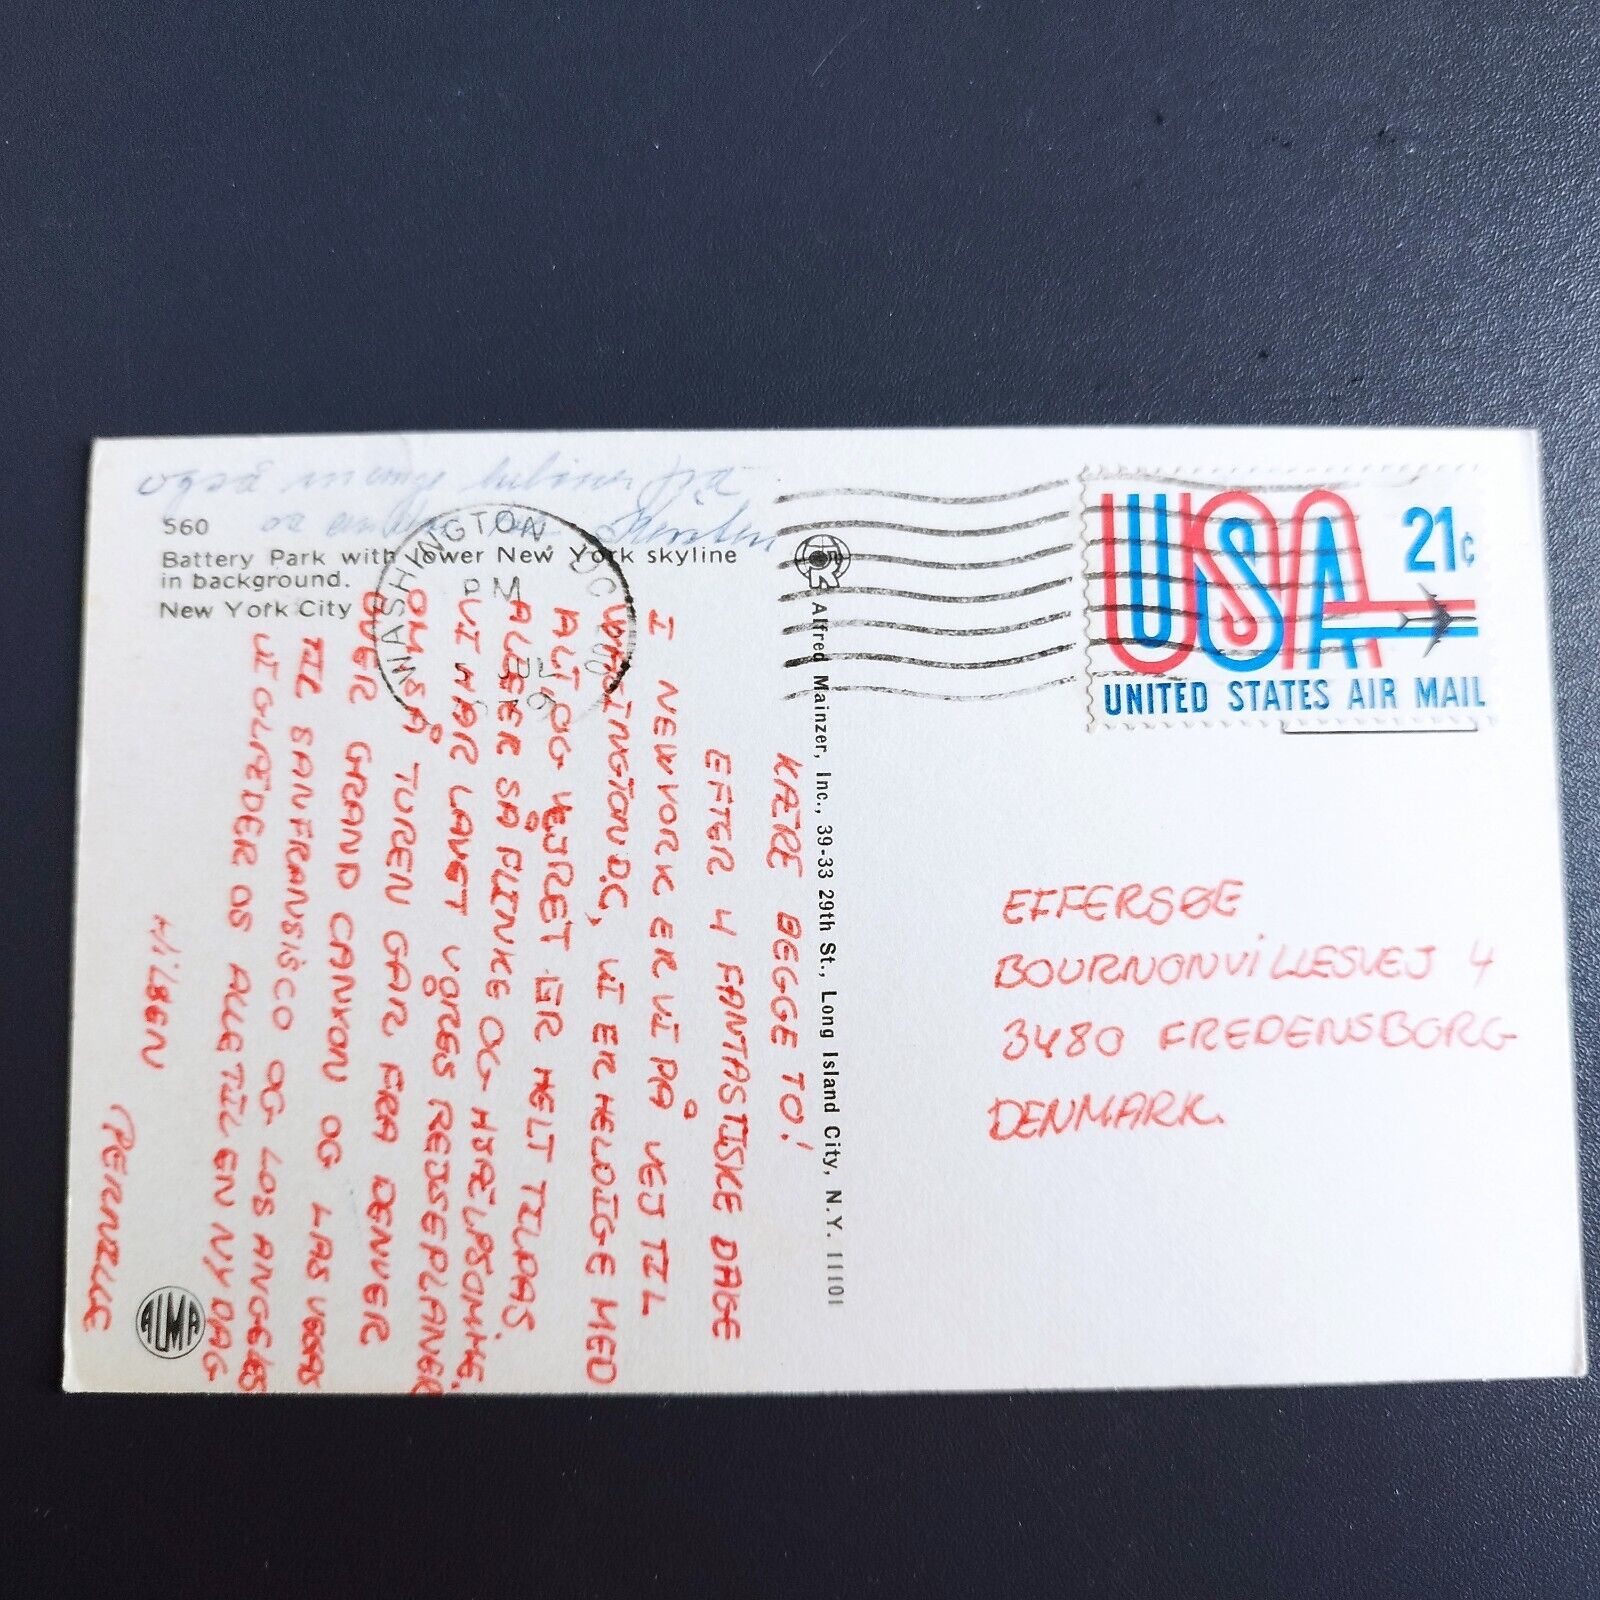 560
Battery Park with lower New York skyline
in background.
New York City
Alfred Mainzer, Inc., 39-33 29th St., Long Island City, N.Y. 11101
ALMA
WASHINGTON, DC
PM
USA 21c
UNITED STATES AIR MAIL
KÆRE BEGGE TO!
EFTER 4 FANTASTISKE DAGE
I NEWYORK ER VI PÅ VEJ TIL
WASHINGTON D.C, VI ER HELDIGE MED
ALT OG VEJRET ER HELT TILPAS.
ALLE ER SÅ FLINKE OG HJÆLPSOMME.
VI HAR LAVET VORES REJSEPLANER
OM SÅ TUREN GÅR FRA DENVER
OVER GRAND CANYON OG LAS VEGAS
TIL SANFRANSISCO OG LOS ANGELES
VI GLÆDER OS ALLE TIL EN NY DAG
HILSEN
PERNILLE
EFFERSØE
BOURNONVILLESVEJ 4
3480 FREDENSBORG
DENMARK.